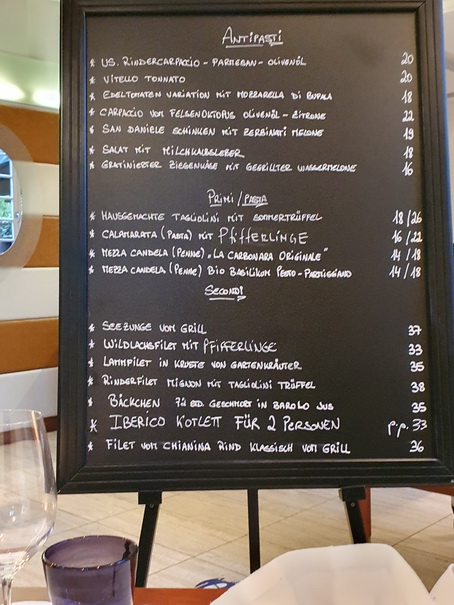 ANTIPASTI
* US. RINDERCARPACCIO - PARMESAN - OLIVENÖL 20
* VITELLO TONNATO 20
* EDELTOMATEN VARIATION MIT MOZZARELLA DI BUFALA 18
* CARPACCIO VOM FELSENOKTOPUS OLIVENÖL - ZITRONE 22
* SAN DANIELE SCHINKEN MIT ZERBINATI MELONE 19
* SALAT MIT MILCHKALBSLEBER 18
* GRATINIERTER ZIEGENKÄSE MIT GEGRILLTER WASSERMELONE 16
PRIMI / PASTA
* HAUSGEMACHTE TAGLIOLINI MIT SOMMERTRÜFFEL 18/26
* CALAMARATA (PASTA) MIT PFIFFERLINGE 16/22
* MEZZA CANDELA (PENNE) „LA CARBONARA ORIGINALE" 14/18
* MEZZA CANDELA (PENNE) BIO BASILIKUM PESTO - PARMIGIANO 14/18
SECONDI
* SEEZUNGE VOM GRILL 37
* WILDLACHSFILET MIT PFIFFERLINGE 33
* LAMMFILET IN KRUSTE VON GARTENKRÄUTER 35
* RINDERFILET MIGNON MIT TAGLIOLINI TRÜFFEL 38
* BÄCKCHEN 72 STD. GESCHMORT IN BAROLO JUS 35
* IBERICO KOTLETT FÜR 2 PERSONEN p.p. 33
* FILET VOM CHIANINA RIND KLASSISCH VOM GRILL 36